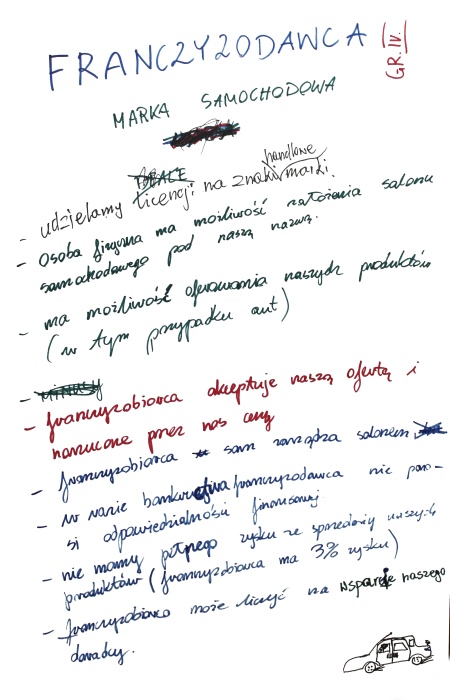 FRANCZYZODAWCA
GR. IV.
MARKA SAMOCHODOWA
- udzielamy licencji na znaki handlowe marki
- Osoba fizyczna ma możliwość założenia salonu
samochodowego pod naszą nazwą.
- ma możliwość oferowania naszych produktów
(w tym przypadku aut)
- minusy
- franczyzobiorca akceptuje naszą ofertę i
narzucone przez nas ceny
- franczyzobiorca sam zarządza salonem
- w razie bankructwa franczyzodawca nie pono-
si odpowiedzialności finansowej
- nie mamy pełnego zysku ze sprzedaży naszych
produktów (franczyzobiorca ma 3% zysku)
- franczyzobiorca może liczyć na wsparcie naszego
doradcy.